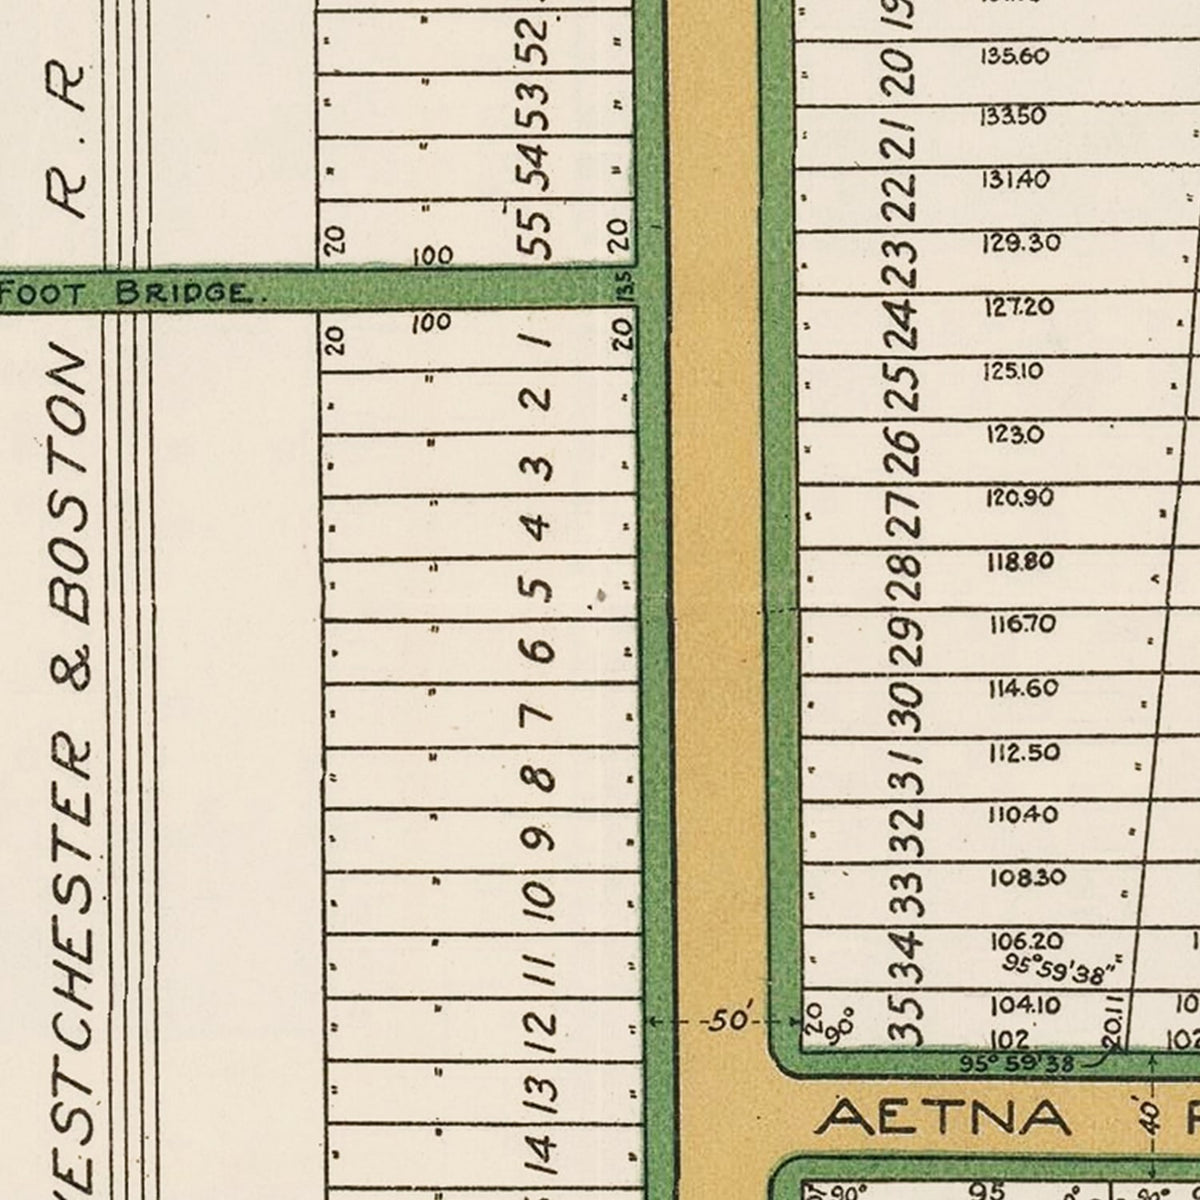 R.R
WESTCHESTER & BOSTON
FOOT BRIDGE.
52
53
54
55
20
100
20
13.5
20
100
20
1
2
3
4
5
6
7
8
9
10
11
12
13
14
19
20
135.60
21
133.50
22
131.40
23
129.30
24
127.20
25
125.10
26
123.0
27
120.90
28
118.80
29
116.70
30
114.60
31
112.50
32
110.40
33
108.30
34
106.20
95°59'38"
35
104.10
20
90°
102
20.11
10
102
95°59'38
50'
AETNA
40'
90°
95